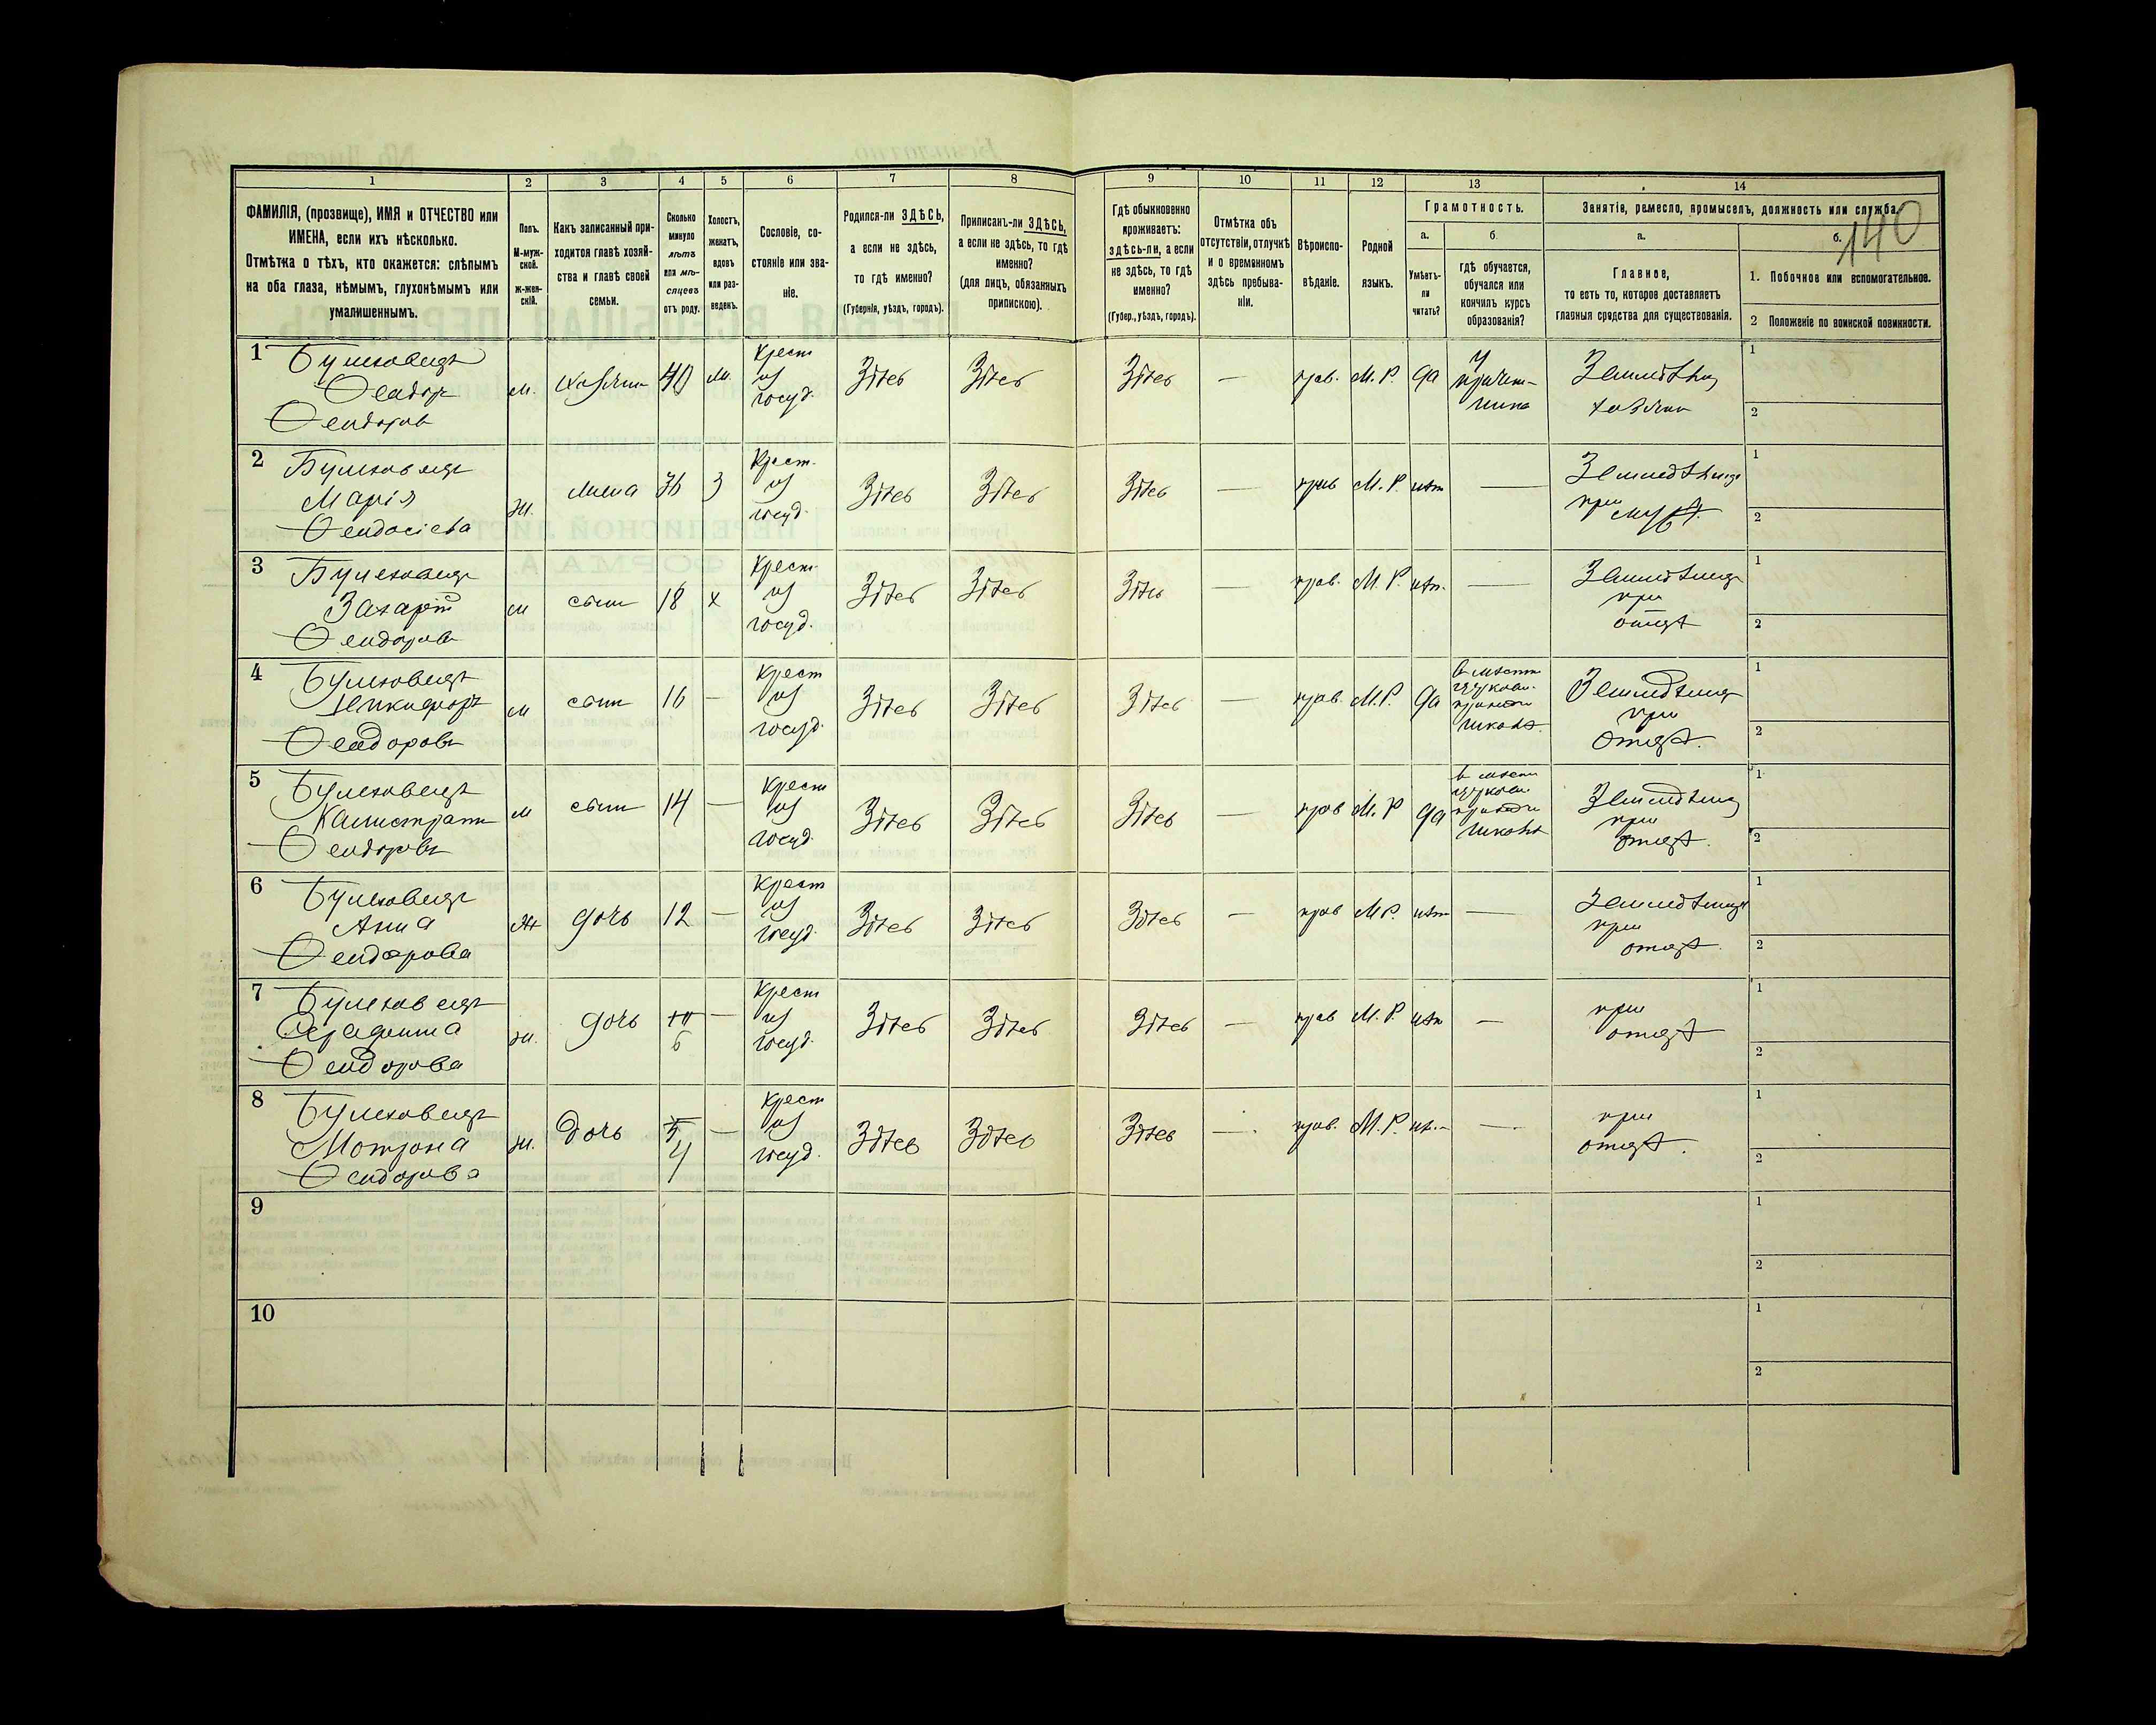 140
1 2 3 4 5 6 7 8 9 10 11 12 13 14
ФАМИЛІЯ, (прозвище), ИМЯ и ОТЧЕСТВО или
ИМЕНА, если ихъ нѣсколько.
Отмѣтка о тѣхъ, кто окажется: слѣпымъ
на оба глаза, нѣмымъ, глухонѣмымъ или
умалишеннымъ.
Полъ.
М-муж-
ской.
ж-жен-
скій.
Какъ записанный при-
ходится главѣ хозяй-
ства и главѣ своей
семьи.
Сколько
минуло
лѣтъ
или мѣ-
сяцевъ
отъ роду.
Холостъ,
женатъ,
вдовъ
или раз-
веденъ.
Сословіе, со-
стояніе или зва-
ніе.
Родился-ли ЗДѢСЬ,
а если не здѣсь,
то гдѣ именно?
(Губернія, уѣздъ, городъ).
Приписанъ-ли ЗДѢСЬ,
а если не здѣсь, то гдѣ
именно?
(для лицъ, обязанныхъ
припискою).
Гдѣ обыкновенно
проживаетъ:
здѣсь-ли, а если
не здѣсь, то гдѣ
именно?
(Губер., уѣздъ, городъ).
Отмѣтка объ
отсутствіи, отлучкѣ
и о временномъ
здѣсь пребыва-
ніи.
Вѣроиспо-
вѣданіе.
Родной
языкъ.
Грамотность.
а.
Умѣетъ-
ли
читать?
б.
гдѣ обучается,
обучался или
кончилъ курсъ
образованія?
Занятіе, ремесло, промыселъ, должность или служба.
а.
Главное,
то есть то, которое доставляетъ
главныя средства для существованія.
б.
1. Побочное или вспомогательное.
2 Положеніе по воинской повинности.
1
Феодор
Феодоров
м. хозяин 40 Крест
из
госуд.
Здѣсь Здѣсь Здѣсь — прав. М. Р. да
Хозяин
1
2
2
Марія
Феодосіева
ж. жена 36 З Крест.
из
госуд.
Здѣсь Здѣсь Здѣсь — прав М. Р. нѣт —
при мужѣ.
1
2
3
Захарій
Феодоров
м сын 18 х Крест.
из
госуд.
Здѣсь Здѣсь Здѣсь — прав. М. Р. нѣт. —
при
отцѣ
1
2
4
Никифоръ
Феодоровъ
м сын 16 — Крест
из
госуд.
Здѣсь Здѣсь Здѣсь — прав. М. Р. да
школѣ.
при
отцѣ.
1
2
5
Калистратъ
Феодоровъ
м сын 14 — Крест
из
госуд
Здѣсь Здѣсь Здѣсь — прав М. Р да
школѣ
при
отцѣ.
1
2
6
Анна
Феодорова
ж дочь 12 — Крест
из
госуд.
Здѣсь Здѣсь Здѣсь — прав М Р. нѣт —
при
отцѣ.
1
2
7
Серафима
Феодорова
ж. дочь 6 — Крест
из
госуд.
Здѣсь Здѣсь Здѣсь — прав М. Р. нѣт —
при
отцѣ
1
2
8
Мотрона
Феодорова
ж. дочь 4 — Крест
из
госуд.
Здѣсь Здѣсь Здѣсь — прав. М. Р. —
при
отцѣ.
1
2
9
1
2
10
1
2